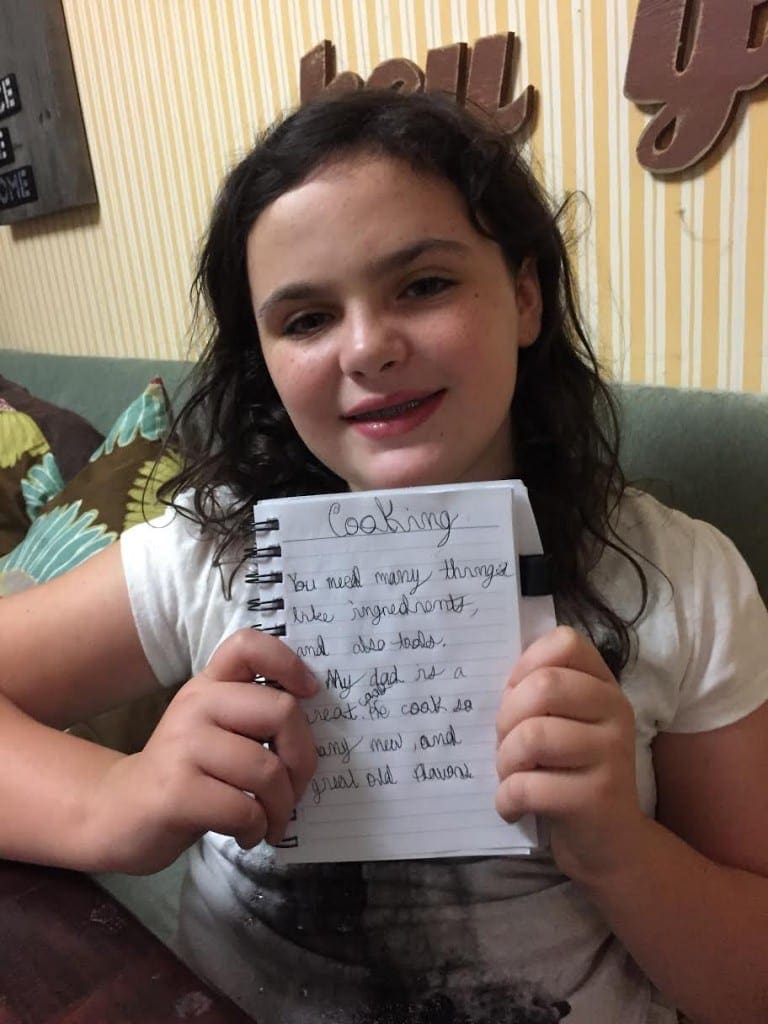 OME
Cooking
You need many things
like ingredients,
and also tools.
My dad is a
reat. cook He cook so
any new, and
great old flavors